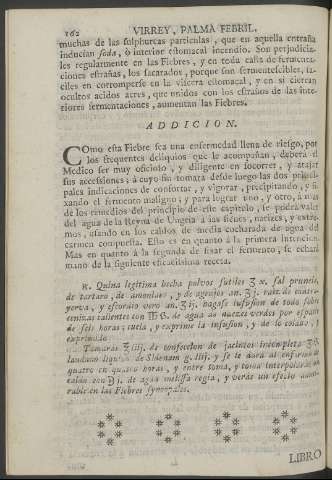 162 VIRREY, PALMA FEBRIL.
muchas de las sulphureas particulas, que en aquella entraña
inducían soda, ò interior estomacal incendio. Son perjudicia-
les regularmente en las Fiebres, y en toda casta de fermenta-
ciones estrañas, los sacarados, porque son fermentescibles, fa-
ciles en corromperse en la viscera estomacal, y en si cierran
ocultos acidos acres, que unidos con los estraños de las inte-
riores fermentaciones, aumentan las Fiebres.
ADDICION.
COmo esta Fiebre sea una enfermedad llena de riesgo, por
los frequentes deliquios que le acompañan, deberá el
Medico ser muy oficioso, y diligente en socorrer, y atajar
sus accessiones; à cuyo fin tomará desde luego las dos princi-
pales indicaciones de confortar, y vigorar, precipitando, y fi-
xando el fermento maligno; y para lograr uno, y otro, à mas
de los remedios del principio de este capitulo, se podrà valer
del agua de la Reyna de Ungria à las sienes, narizes, y extre-
mos, usando en los caldos de media cucharada de agua de
carmen compuesta. Esto es en quanto à la primera intencion.
Mas en quanto à la segunda de fixar el fermento, se echarà
mano de la siguiente eficacissima receta.
R. Quina legitima hecha polvos sutiles ʒ x. sal prunele,
de tartaro, de amoniaco, y de agenjos an. ʒ j. raiz de contra-
yerva, y escorzo nero an. ʒ ij. hagase infusion de todo sobre
cenizas calientes con de agua de nuezes verdes por espacio
de seis horas; cuela, y exprime la infusion, y de lo colado, y
exprimido
Tomarás ℥ iiij. de confeccion de jacintos incompleta
laudano liquido de Sidenam g. iiij. y se le darà al enfermo de
quatro en quatro horas, y entre toma, y toma interpolarás
caldo con de agua melissa regia, y verás un efecto admi-
rable en las Fiebres syncopales.
LIBRO